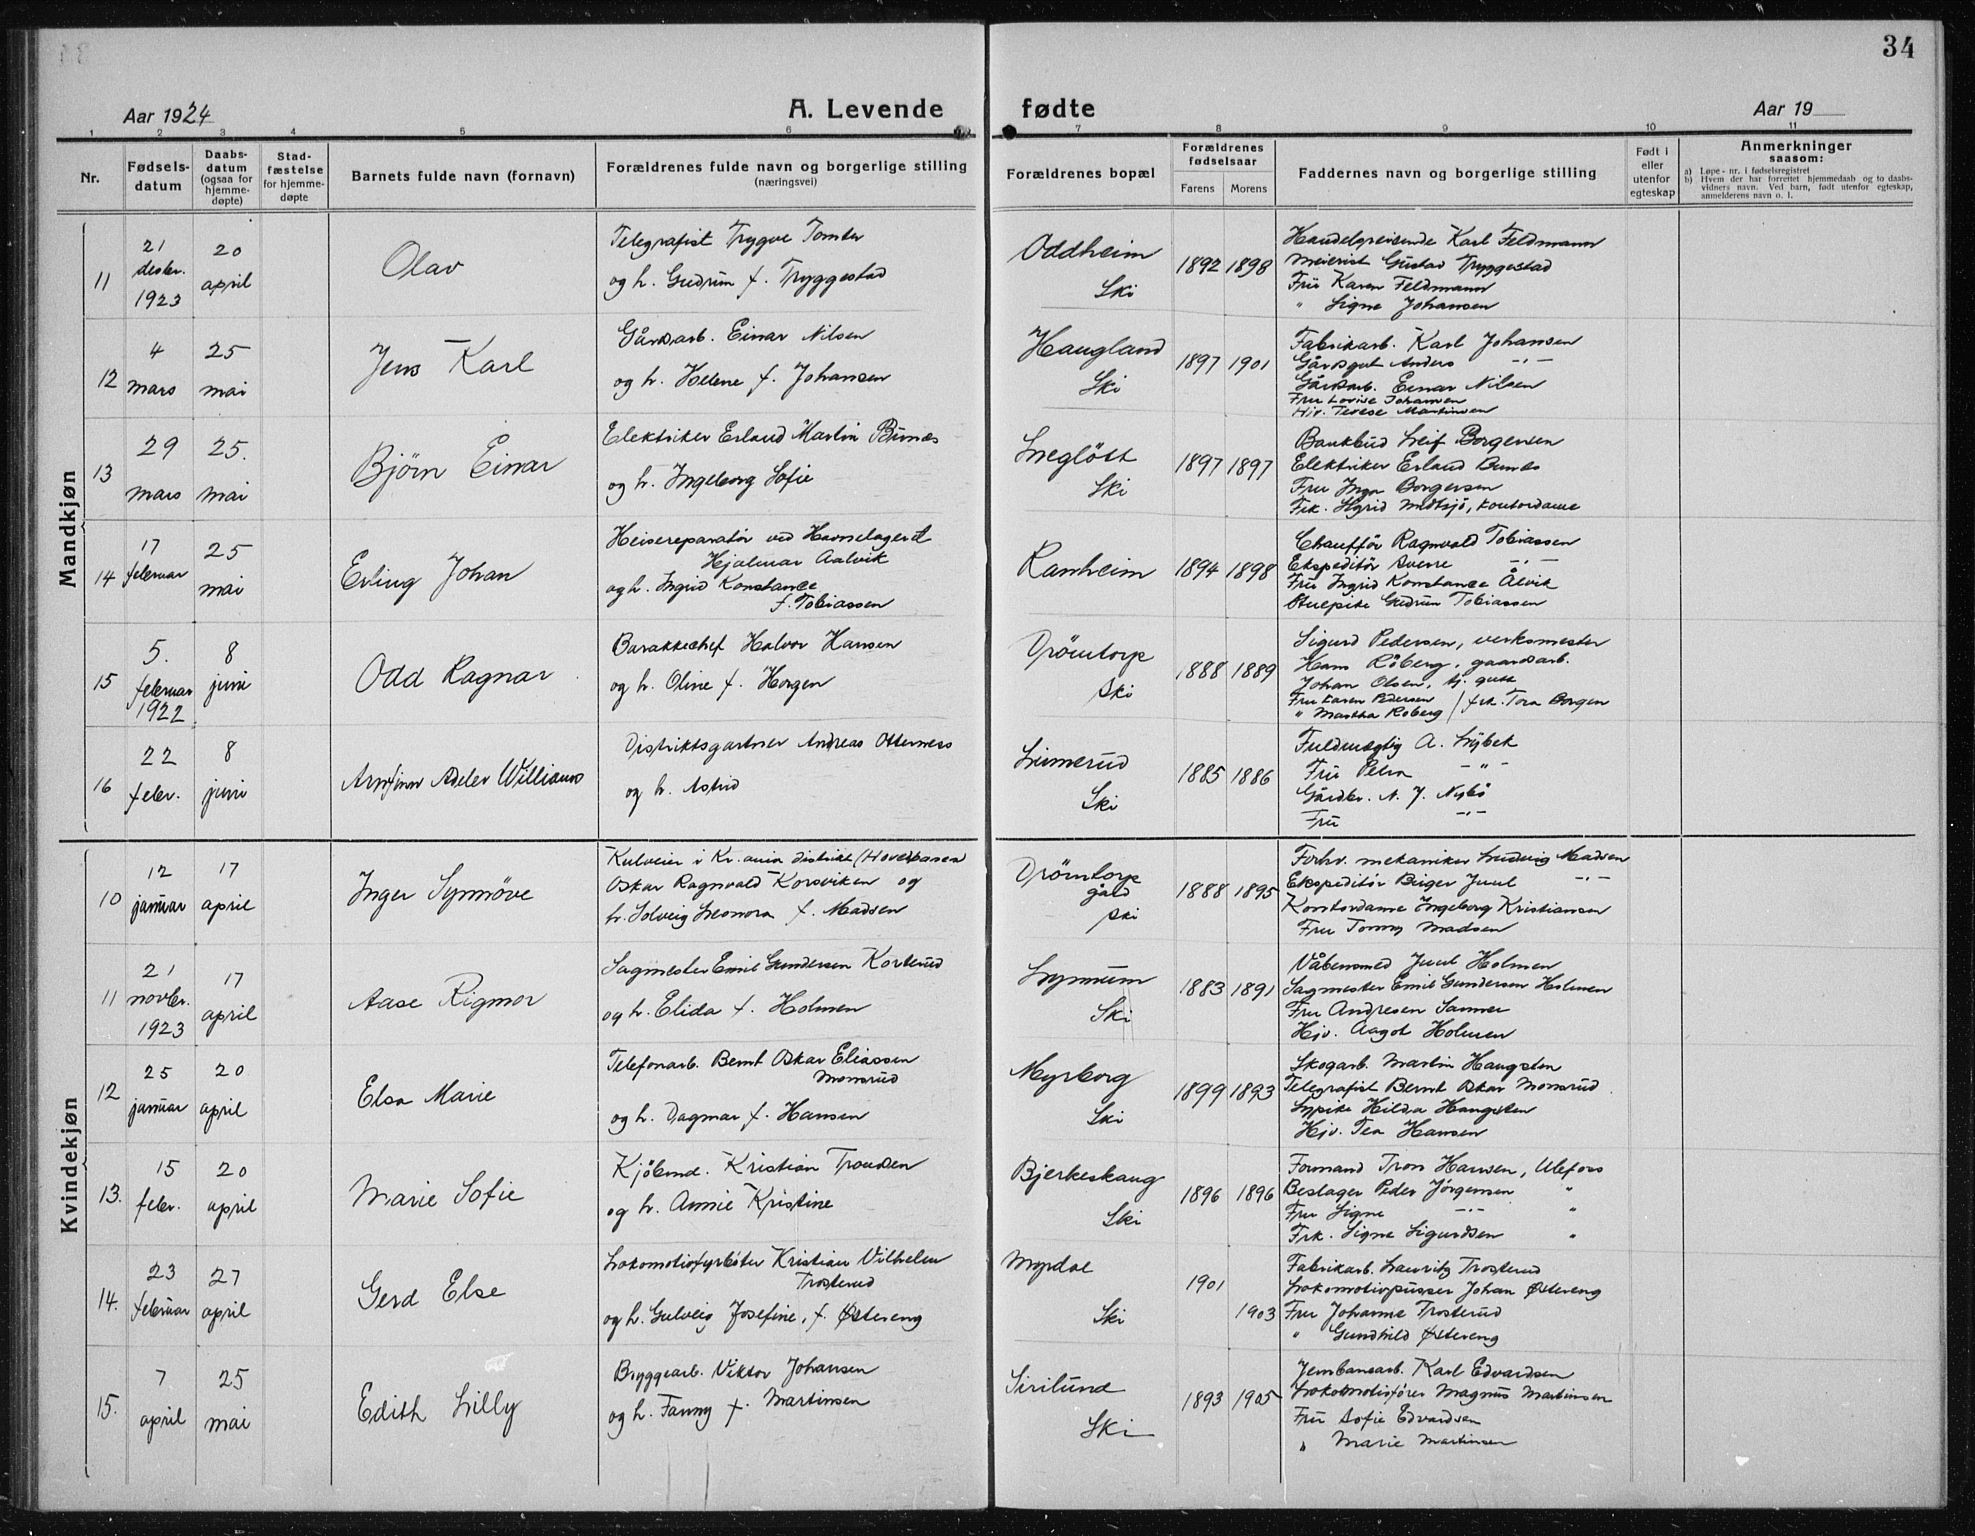 34
Aar 1924
A. Levende fødte
Aar 19
1 2 3 4 5 6 7 8 9 10 11
Nr.
Fødselsdatum
Daabsdatum (ogsaa for hjemmedøpte)
Stadfæstelse for hjemmedøpte
Barnets fulde navn (fornavn)
Forældrenes fulde navn og borgerlige stilling
(næringsvei)
Forældrenes bopæl
Forældrenes fødselsaar
Farens Morens
Faddernes navn og borgerlige stilling
Født i eller utenfor egteskap
Anmerkninger
saasom:
a) Løpe-nr. i fødselsregistret
b) Hvem der har forrettet hjemmedaab og to daabsvidners navn. Ved barn, født utenfor egteskap, anmelderens navn o. l.
Mandkjøn
11
21 desbr. 1923
20 april
Olav
Telegrafist Trygve Tomter
og h. Gudrun f. Tryggestad
Oddheim
Ski
1892 1898
Handelsreisende Karl Feldmann
Meierist Gustav Tryggestad
Fru Karen Feldmann
" Signe Johansen
12
4 mars
25 mai
Jens Karl
Gårdsarb. Einar Nilsen
og h. Helene f. Johansen
Haugland
Ski
1897 1901
Fabrikarb. Karl Johansen
Gårdsgut Anders -"-
Gårdsarb. Einar Nilsen
Fru Lovise Johansen
Hjv. Terese Martinsen
13
29 mars
25. mai
Bjørn Einar
Elektriker Erland Martin Bunæs
og h. Ingeborg Sofie
Sneglött
Ski
1897 1897
Bankbud Leif Borgersen
Elektriker Erland Bunæs
Fru Inga Borgersen
Frk. Sigrid Midtsjø, kontordame
14
17 februar
25 mai
Erling Johan
Heisereparatør ved Havnelageret
Hjalmar Aalvik
og h. Ingrid Konstance
f. Tobiassen
Ranheim
1894 1898
Chauffør Ragnvald Tobiassen
Ekspeditør Sverre -"-
Fru Ingrid Konstance Ålvik
Stuepike Gudrun Tobiassen
15
5. februar 1922
8 juni
Odd Ragnar
Barakkechef Halvor Hansen
og h. Oline f. Horgen
Drömtorp
Ski
1888 1889
Sigurd Pedersen, verksmester
Hans Röberg, gaardsarb.
Johan Olsen, tj. gutt
Fru Karen Pedersen
" Martha Röberg / frk. Tora Borgen
16
22 febr.
8 juni
Arnfinn Adeler Williams
Distriktsgartner Andreas Otterness
og h. Astrid
Limerud
Ski
1885 1886
Fuldmægtig A. Lybek
Fru Petra -"-
Gårdbr. A. J. Nybö
Fru -"-
Kvindekjøn
10
12 januar
17 april
Inger Synnöve
Kulveier i Kr.ania distrikt (Hovedbanen)
Oskar Ragnvald Korsviken og
h. Solveig Leonora f. Madsen
Drömtorp
gård
Ski
1888 1895
Forhv. mekaniker Ludvig Madsen
Ekspeditör Birger Juul -"-
Kontordame Ingeborg Kristiansen
Fru Tommy Madsen
11
21 novbr. 1923
17 april
Aase Rigmor
Sagmester Emil Gundersen Korterud
og h. Elida f. Holmen
Ski
1883 1891
Våbensmed Juul Holmen
Sagmester Emil Gundersen Holmen
Fru Andresen Sanner
Hjv. Aagot Holmen
12
25 januar
20 april
Elsa Marie
Telefonarb. Bernt Oskar Eliassen
Monsrud
og h. Dagmar f. Hansen
Myrborg
Ski
1899 1893
Skogarb. Martin Haugsten
Telegrafist Bernt Oskar Monsrud
Sypike Hilda Haugsten
Hjv. Tea Hansen
13.
15 febr.
20 april
Marie Sofie
Kjöbmd. Kristian Trondsen
og h. Annie Kristine
Bjerkeskaug
Ski
1896 1896
Formand Tron Hansen, Ulefoss
Beslager Peder Jörgensen "
Fru Signe -"- "
Frk. Signe Sigurdsen "
14.
23 februar
27 april
Gerd Else
Lokomotivfyrböter Kristian Vilhelm
Trosterud
og h. Gulveig Josefine, f. Østereng
Myrdal
Ski
1901
1903
Fabrikarb. Lauritz Trosterud
Lokomotivpusser Johan Østereng
Fru Johanne Trosterud
" Gundhild Østereng
15.
7 april
25 mai
Edith Lilly
Bryggearb. Viktor Johansen
og h. Fanny f. Martinsen
Sirilund
Ski
1893 1905
Jernbanearb. Karl Edvardsen
Lokomotivförer Magnus Martinsen
Fru Sofie Edvardsen
" Marie Martinsen